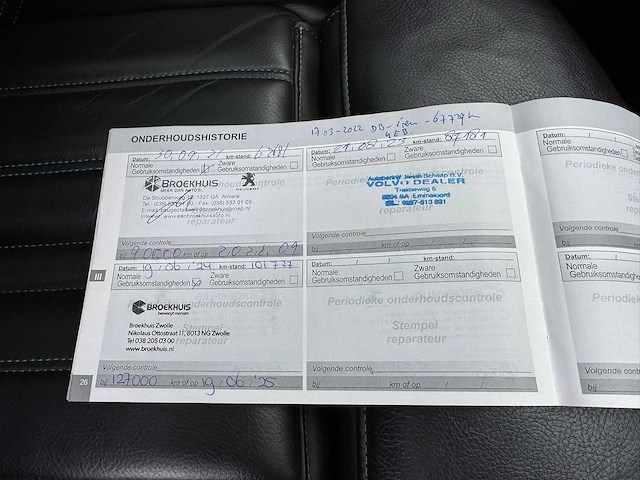 17-03-2022
ONDERHOUDSHISTORIE
Datum: km-stand:
Normale Gebruiksomstandigheden Zware Gebruiksomstandigheden
BROEKHUIS
MEER DAN AUTO'S
PEUGEOT
De Strubbenweg 12, 1327 GA Almere
reparateur
Volgende controle
bij 90000 km of op 2022 09
Datum: 21.05.23 km-stand: 87161
Normale Gebruiksomstandigheden Zware Gebruiksomstandigheden
Autobedrijf Jansen Schaap B.V.
VOLVO DEALER
reparateur
Volgende controle
bij km of op / /
III
Datum: 19/06/'24 km-stand: 101777
Normale Gebruiksomstandigheden Zware Gebruiksomstandigheden
onderhoudscontrole
BROEKHUIS
beweegt mensen
Stempel
reparateur
Broekhuis Zwolle
Nikolaus Ottostraat 11, 8013 NG Zwolle
Tel 038 205 03 00
www.broekhuis.nl
Volgende controle
bij 127000 km of op 19/06/'25
Datum: / / km-stand:
Normale Gebruiksomstandigheden Zware Gebruiksomstandigheden
Periodieke onderhoudscontrole
Stempel
reparateur
Volgende controle
bij km of op / /
26
Datum: / /
Normale
Gebruiksomstandigheden
Periodieke
Volgende controle
bij
Datum: / /
Normale
Gebruiksomstandigheden
Volgende controle
bij